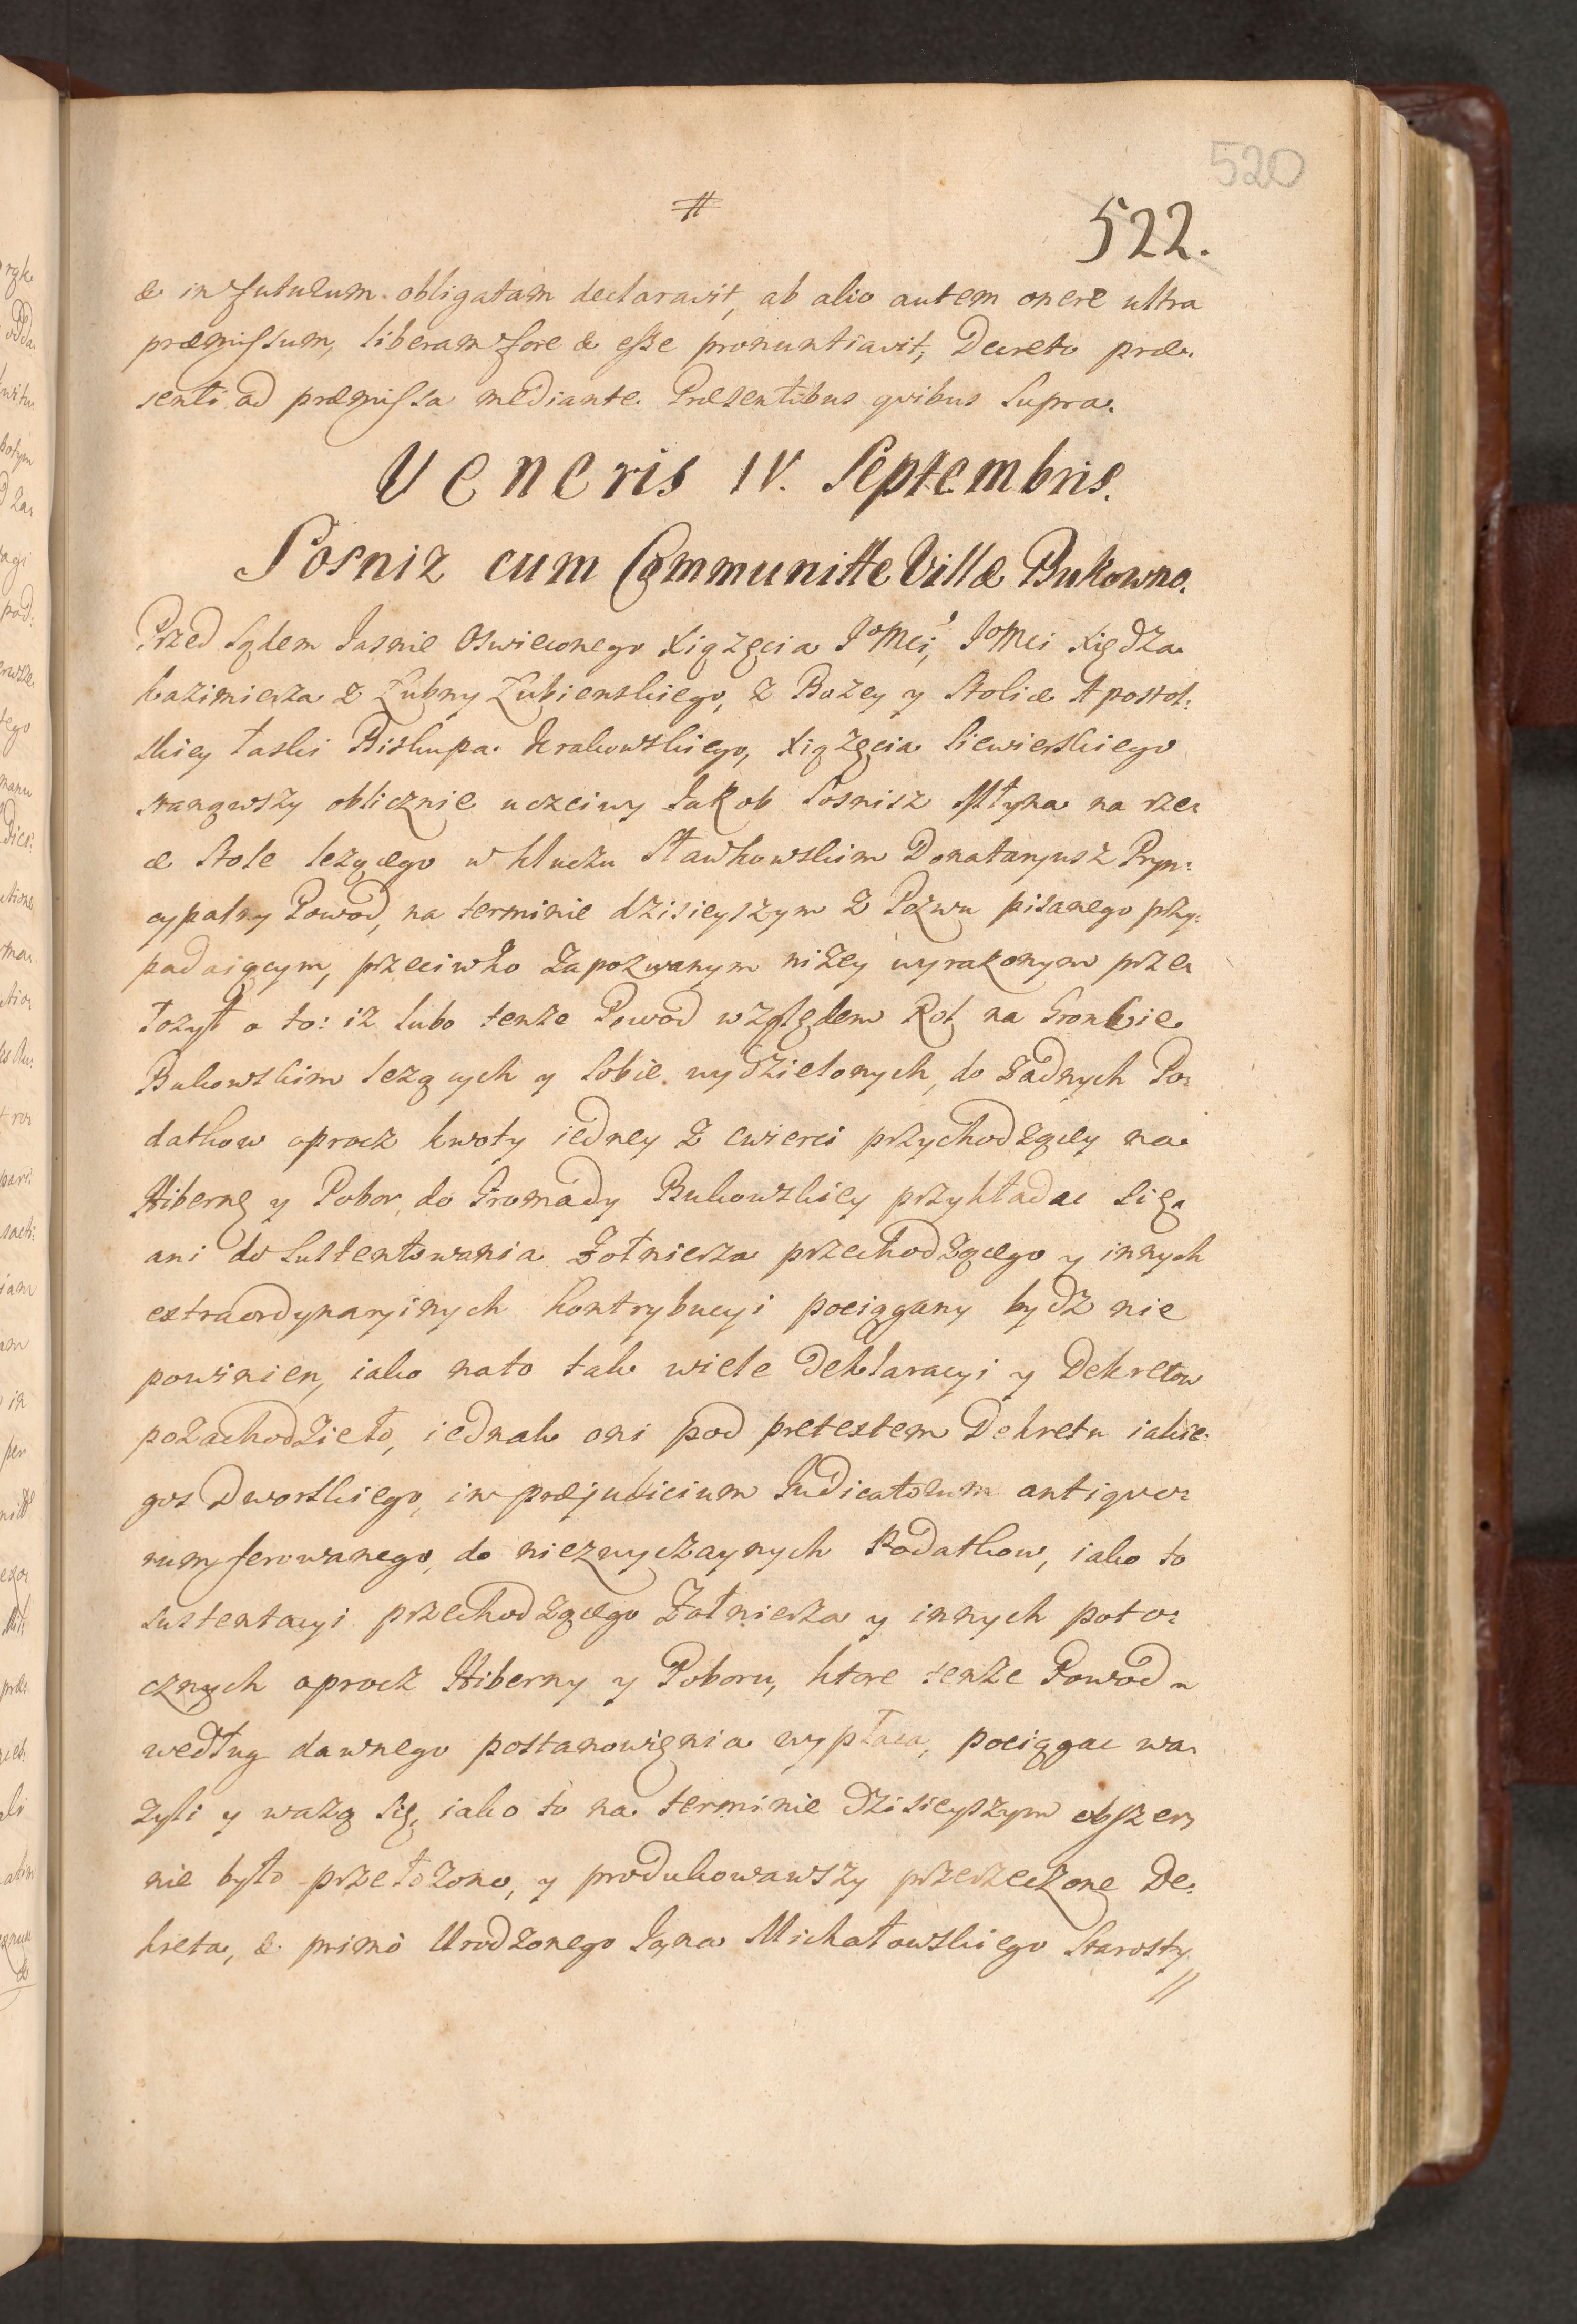 520
#
522.
& in futurum obligatam declaravit, ab alio autem onere ultra
præmissum, liberam fore & esse pronuntiavit, Decreto præ:
senti ad præmissa mediante. Præsentibus quibus Supra.
Veneris IV. Septembris.
Sosniz cum Communitte Villæ Bukowno.
Przed Sądem Jasnie Oswieconego Xiązęcia JoMci, JoMci Xiędza
Kazimierza z Łubny Łubienskiego, z Bozey y Stolice Apostol:
skiey łaski Biskupa Krakowskiego, Xiązęcia Siewierskiego
stanąwszy oblicznie uczciwy Jakob Sosnisz Młyna na rze:
ce Stole lezącego w kluczu Sławkowskim Donataryusz Pryn:
cypalny Powod, na terminie dzisieyszym z Pozwu pisanego przy:
padaiącym, przeciwko Zapozwanym nizey wyrazonym prze:
łozył o to: iz lubo tenze Powod względem Rol na Gronkie
Bukowskim lezących y sobie wydzielonych, do zadnych Po:
datkow oprocz kwoty iedney z cwierci przychodzącey na
Hibernę y Pobor, do Gromady Bukowskiey przykładac się,
ani do sustentowania Zołnierza przechodzącego y innych
extraordynaryinych kontrybucyi pociągany bydz nie
powinien, iako nato tak wiele Deklaracyi y Dekretow
pozachodzieło, iednak oni pod pretextem Dekretu iakie:
gos Dworskiego, in præjudicium Judicatorum antiquo:
rum ferowanego, do niezwyczaynych Podatkow, iako to
sustentacyi przechodzącego Zołnierza y innych poto:
cznych oprocz Hiberny y Poboru, ktore tenze Powod
według dawnego postanowięnia wypłaca, pociągac wa:
zyli y wazą się, iako to na terminie dzisieyszym obszer:
nie było przełozono, y produkowawszy przerzeczone De:
kreta, & primò Urodzonego Jana Michałowskiego Starosty
//